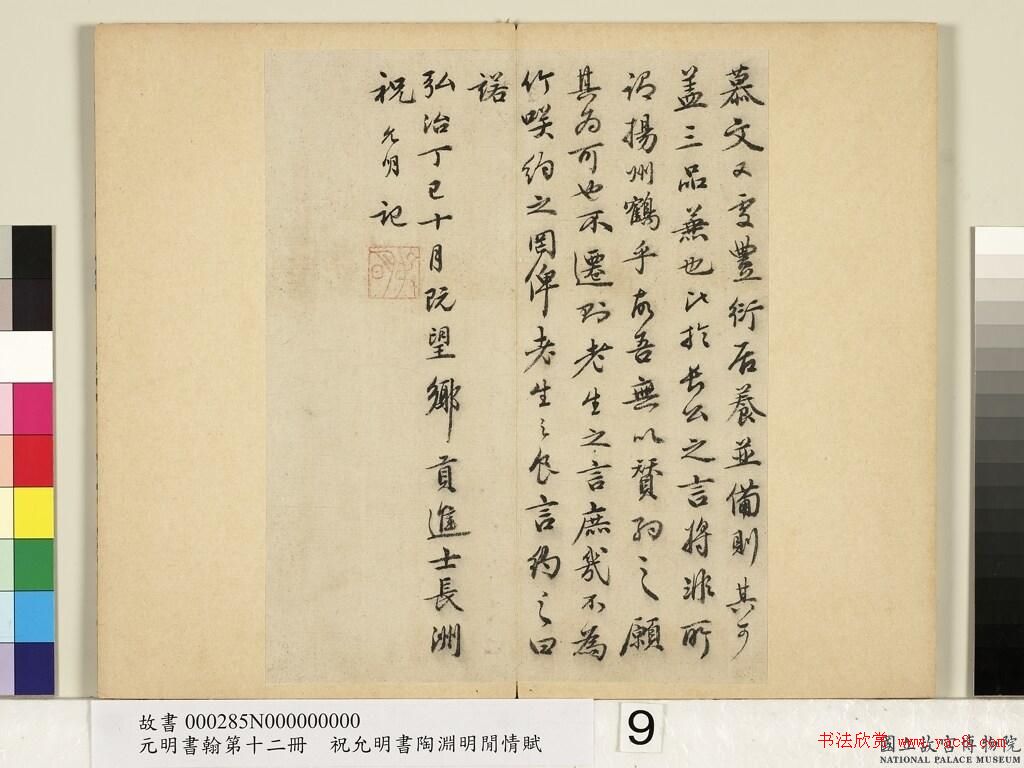 慕文又雯豐衍居養並備則其可
蓋三品兼也比於長公之言將非所
謂揚州鶴乎故吾無以贊約之願
其為可也不遷則老生之言庶幾不為
竹咲約之罔俾老生之食言約之曰
諾
弘治丁巳十月既望鄉貢進士長洲
祝允明記
故書 000285N000000000
元明書翰第十二冊 祝允明書陶淵明閒情賦
9
書法欣賞 www.yac8.com
國立故宮博物院
NATIONAL PALACE MUSEUM